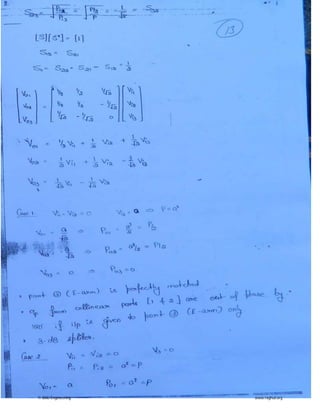 S₂₃ = √(P₁₃/P₁₃) = √(P/2 / P) = -1/√2 = S₃₂
13
[S][S*] = [1]
S₁₁ = S₂₂
S₁₁ = S₂₂ = S₂₁ = S₁₂ = 1/2
[V₀₁ V₀₂ V₀₃] = [1/2 1/2 1/√2; 1/2 1/2 -1/√2; 1/√2 -1/√2 0] [Vi₁ Vi₂ Vi₃]
V₀₁ = 1/2 Vi₁ + 1/2 Vi₂ + 1/√2 Vi₃
V₀₂ = 1/2 Vi₁ + 1/2 Vi₂ - 1/√2 Vi₃
V₀₃ = 1/√2 Vi₁ - 1/√2 Vi₂
Case 1 Vi₁ = Vi₂ = 0 Vi₃ = a ⇒ P = a²
V₀₁ = a/√2 P₀₁ = a²/2 = P/2
V₀₂ = -a/√2 ⇒ P₀₂ = a²/2 = P/2
V₀₃ = 0 ⇒ P₀₃ = 0
• port ③ (E-arm) is perfectly matched
• o/p from collinear ports [1 & 2] are out of phase by
180° if i/p is given to port ③ (E-arm) only
• 3-dB splitter.
Case 2 Vi₁ = Vi₂ = a V₃ = 0
Pi₁ = Pi₂ = a² = P
V₀₁ = a P₀₁ = a² = P